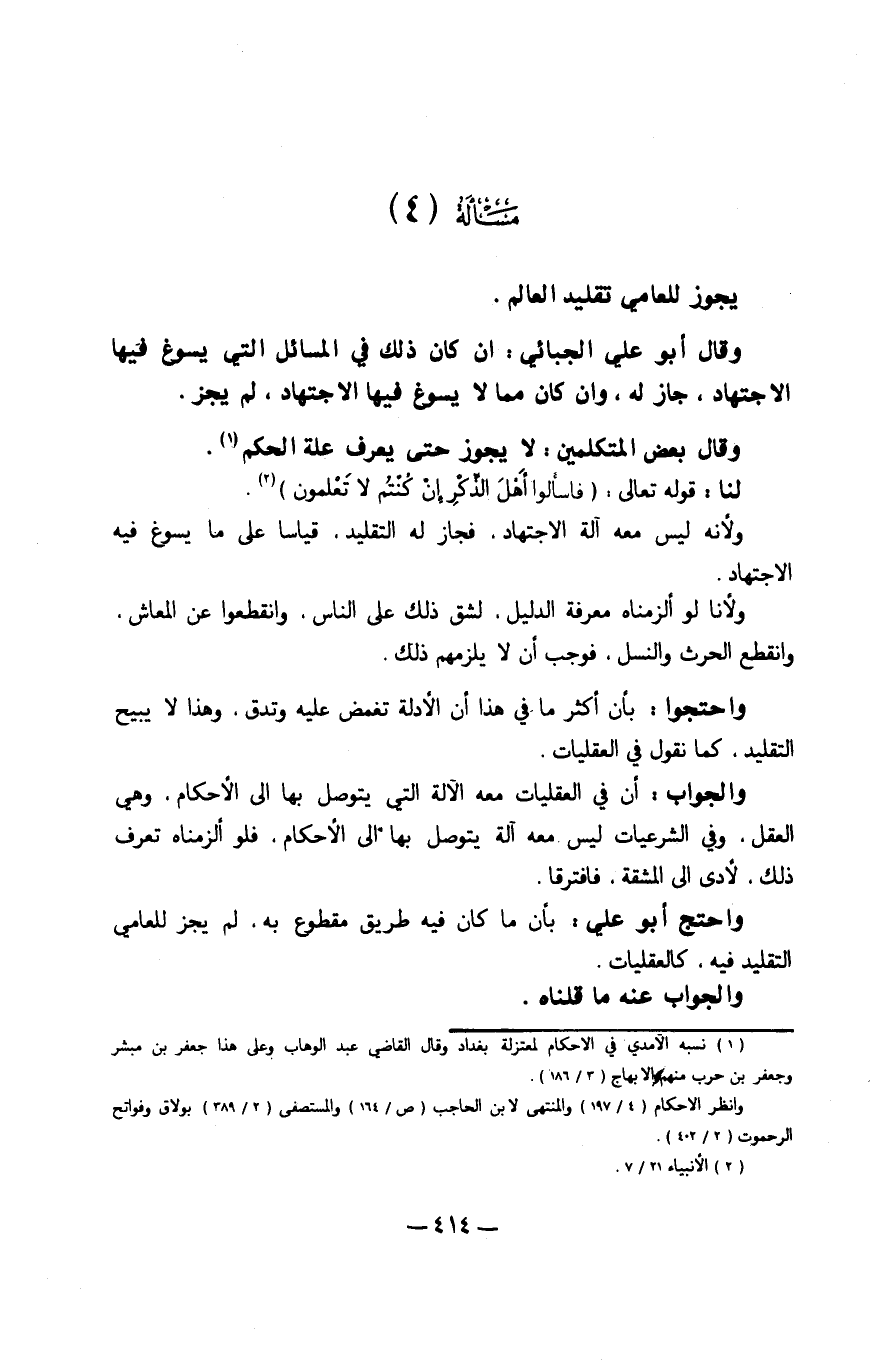 مسألة (٤)
يجوز للعامي تقليد العالم .
وقال أبو علي الجبائي : ان كان ذلك في المسائل التي يسوغ فيها
الاجتهاد ، جاز له ، وان كان مما لا يسوغ فيها الاجتهاد ، لم يجز .
وقال بعض المتكلمين : لا يجوز حتى يعرف علة الحكم(١) .
لنا : قوله تعالى : ( فاسألوا أَهْلَ الذِّكْرِ إِنْ كُنْتُم لا تَعْلمون )(٢) .
ولأنه ليس معه آلة الاجتهاد ، فجاز له التقليد ، قياسا على ما يسوغ فيه
الاجتهاد .
ولأنا لو ألزمناه معرفة الدليل ، لشق ذلك على الناس ، وانقطعوا عن المعاش ،
وانقطع الحرث والنسل ، فوجب أن لا يلزمهم ذلك .
واحتجوا : بأن أكثر ما في هذا أن الأدلة تغمض عليه وتدق ، وهذا لا يبيح
التقليد ، كما نقول في العقليات .
والجواب : أن في العقليات معه الآلة التي يتوصل بها الى الأحكام ، وهي
العقل ، وفي الشرعيات ليس معه آلة يتوصل بها الى الأحكام ، فلو ألزمناه تعرف
ذلك ، لأدى الى المشقة ، فافترقا .
واحتج أبو علي : بأن ما كان فيه طريق مقطوع به ، لم يجز للعامي
التقليد فيه ، كالعقليات .
والجواب عنه ما قلناه .
(١) نسبه الآمدي في الاحكام لمعتزلة بغداد وقال القاضي عبد الوهاب وعلى هذا جعفر بن مبشر
وجعفر بن حرب منهم الابهاج ( ٣ / ١٨٦ ) .
وانظر الاحكام ( ٤ / ١٩٧ ) والمنتهى لابن الحاجب ( ص / ١٦٤ ) والمستصفى ( ٢ / ٣٨٩ ) بولاق وفواتح
الرحموت ( ٢ / ٤٠٢ ) .
( ٢ ) الأنبياء ٢١ / ٧ .
— ٤١٤ —